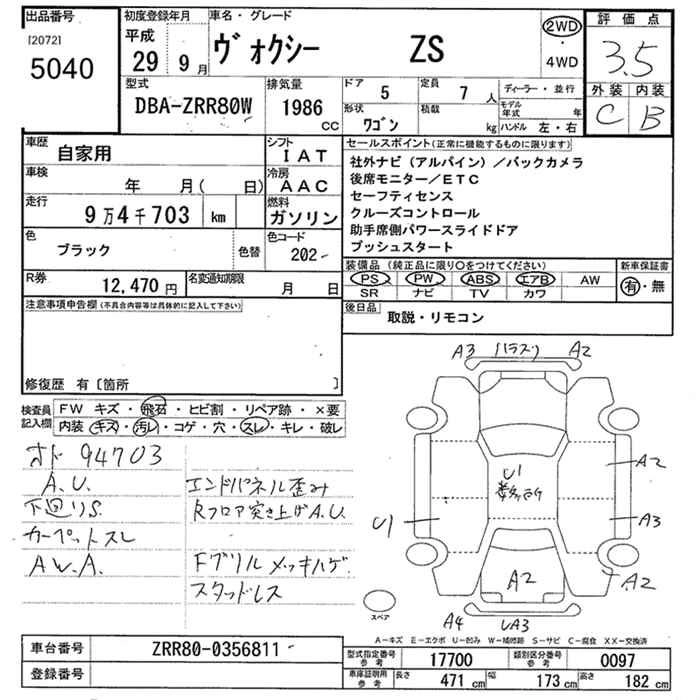 出品番号
[2072]
5040
初度登録年月
平成
29年 9月
車名・グレード
ヴォクシー ZS
2WD
・
4WD
評価点
3.5
外装 内装
C B
型式
DBA-ZRR80W
排気量
1986
CC
ドア 5
定員 7人
形状 ワゴン
積載 kg
ディーラー・並行
モデル年式 年
ハンドル 左・右
車歴 自家用
シフト IAT
車検 年 月( 日)
冷房 AAC
走行 9万4千703 km
燃料 ガソリン
色 ブラック 色替
色コード 202-
R券 12,470円
名変通知期限 月 日
セールスポイント(正常に機能するものに限ります)
社外ナビ(アルパイン)/バックカメラ
後席モニター/ETC
セーフティセンス
クルーズコントロール
助手席側パワースライドドア
プッシュスタート
装備品(純正品に限り○をつけてください)
PS PW ABS エアB AW
SR ナビ TV カワ
新車保証書
有・無
後日品 取説・リモコン
注意事項申告欄(不具合内容等は具体的に記入して下さい)
修復歴 有〔箇所 〕
検査員記入欄
FW キズ・飛石・ヒビ割・リペア跡・×要
内装 キズ・汚レ・コゲ・穴・スレ・キレ・破レ
オド 94703
A.U.
下回りS.
カーペットスレ
A.W.A.
エンドパネル歪み
Rフロア突き上げA.U.
Fグリルメッキハゲ
スタッドレス
A3 A2
U1
A2
U1
A3
A2
A2
スペア
A4 UA3
A-キズ E-エクボ U-凹み W-補修跡 S-サビ C-腐食 XX-交換済
車台番号 ZRR80-0356811
登録番号
型式指定番号 参考 17700
類別区分番号 参考 0097
車庫証明用 参考 長さ 471 cm 幅 173 cm 高さ 182 cm